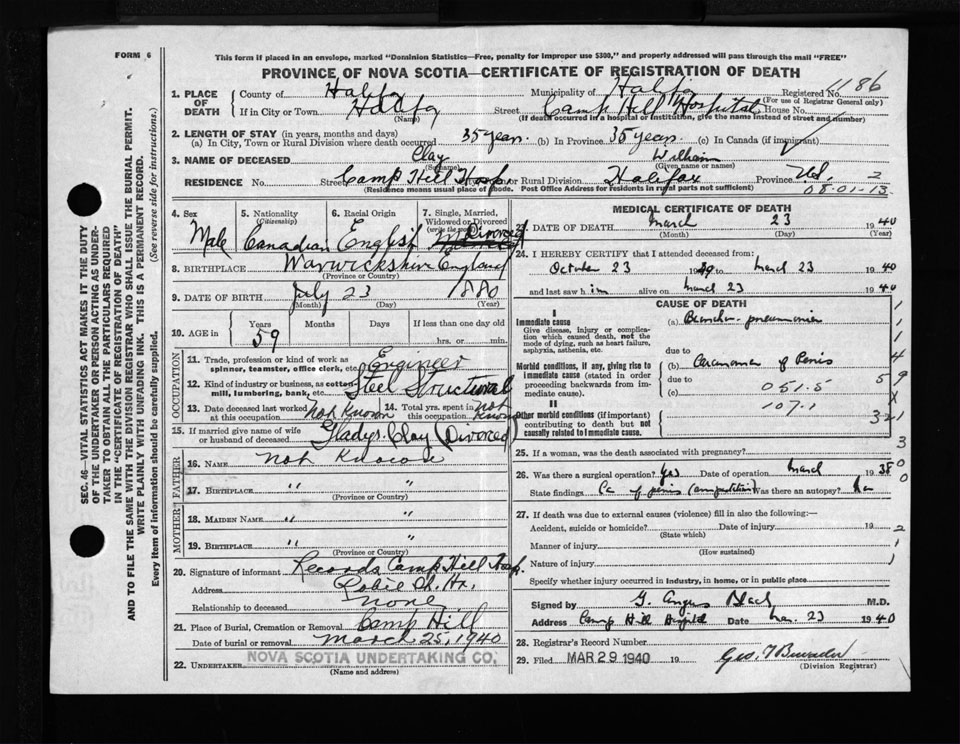 FORM 6
This form if placed in an envelope, marked "Dominion Statistics—Free, penalty for improper use $300," and properly addressed will pass through the mail "FREE"
PROVINCE OF NOVA SCOTIA—CERTIFICATE OF REGISTRATION OF DEATH
1. PLACE OF DEATH County of Halifax Municipality of Halifax Registered No. 1186
(For use of Registrar General only)
If in City or Town Halifax Street Camp Hill Hospital House No.
(Name) (If death occurred in a hospital or institution, give the name instead of street and number)
2. LENGTH OF STAY (in years, months and days)
(a) In City, Town or Rural Division where death occurred 35 years. (b) In Province 35 years. (c) In Canada (if immigrant)
3. NAME OF DECEASED Clay William
(Surname) (Given name or names)
RESIDENCE No. Street Camp Hill Hosp. or Rural Division Halifax Province N.S. 2
(Residence means usual place of abode. Post Office Address for residents in rural parts not sufficient) 08.01-13
4. Sex Male
5. Nationality (Citizenship) Canadian
6. Racial Origin English
7. Single, Married, Widowed or Divorced (write the word) Divorced
8. BIRTHPLACE Warwickshire England
(Province or Country)
9. DATE OF BIRTH July 23 1880
(Month) (Day) (Year)
10. AGE in Years Months Days If less than one day old
59 hrs. or min.
OCCUPATION
11. Trade, profession or kind of work as spinner, teamster, office clerk, etc. Engineer
12. Kind of industry or business, as cotton mill, lumbering, bank, etc. Steel Structural
13. Date deceased last worked at this occupation Not Known 14. Total yrs. spent in this occupation Not Known
15. If married give name of wife or husband of deceased Gladys Clay (Divorced)
FATHER
16. NAME Not Known
17. BIRTHPLACE " "
(Province or Country)
MOTHER
18. MAIDEN NAME " "
19. BIRTHPLACE " "
(Province or Country)
20. Signature of informant Records Camp Hill Hosp.
Address Robie St. Hx.
Relationship to deceased none
21. Place of Burial, Cremation or Removal Camp Hill
Date of burial or removal March 25, 1940
22. UNDERTAKER NOVA SCOTIA UNDERTAKING CO.
(Name and address)
MEDICAL CERTIFICATE OF DEATH
23. DATE OF DEATH March 23 1940
(Month) (Day) (Year)
24. I HEREBY CERTIFY that I attended deceased from:
October 23 1939 to March 23 1940
and last saw him alive on March 23 1940
CAUSE OF DEATH
I
Immediate cause (a) Broncho-pneumonia
Give disease, injury or complication which caused death, not the mode of dying, such as heart failure, asphyxia, asthenia, etc.
due to
Morbid conditions, if any, giving rise to immediate cause (stated in order proceeding backwards from immediate cause).
(b) Carcinoma of Penis
due to
(c) 051.5
II
107.1
Other morbid conditions (if important) contributing to death but not causally related to immediate cause.
1
1
1
4
59
X
321
3
0
0
25. If a woman, was the death associated with pregnancy?
26. Was there a surgical operation? Yes Date of operation March 1938
State findings Ca of penis (amputation) Was there an autopsy? No
27. If death was due to external causes (violence) fill in also the following:—
Accident, suicide or homicide? Date of injury 19
(State which)
Manner of injury
(How sustained)
Nature of injury
2
1
1
Specify whether injury occurred in industry, in home, or in public place
Signed by G. Angus Black M.D.
Address Camp Hill Hospital Date Mar. 23 1940
28. Registrar's Record Number
29. Filed MAR 29 1940 19
(Division Registrar)
SEC. 46—VITAL STATISTICS ACT MAKES IT THE DUTY
OF THE UNDERTAKER OR PERSON ACTING AS UNDERTAKER TO OBTAIN ALL THE PARTICULARS REQUIRED
IN THE "CERTIFICATE OF REGISTRATION OF DEATH"
AND TO FILE THE SAME WITH THE DIVISION REGISTRAR WHO SHALL ISSUE THE BURIAL PERMIT.
WRITE PLAINLY WITH UNFADING INK. THIS IS A PERMANENT RECORD.
Every item of information should be carefully supplied. (See reverse side for instructions.)